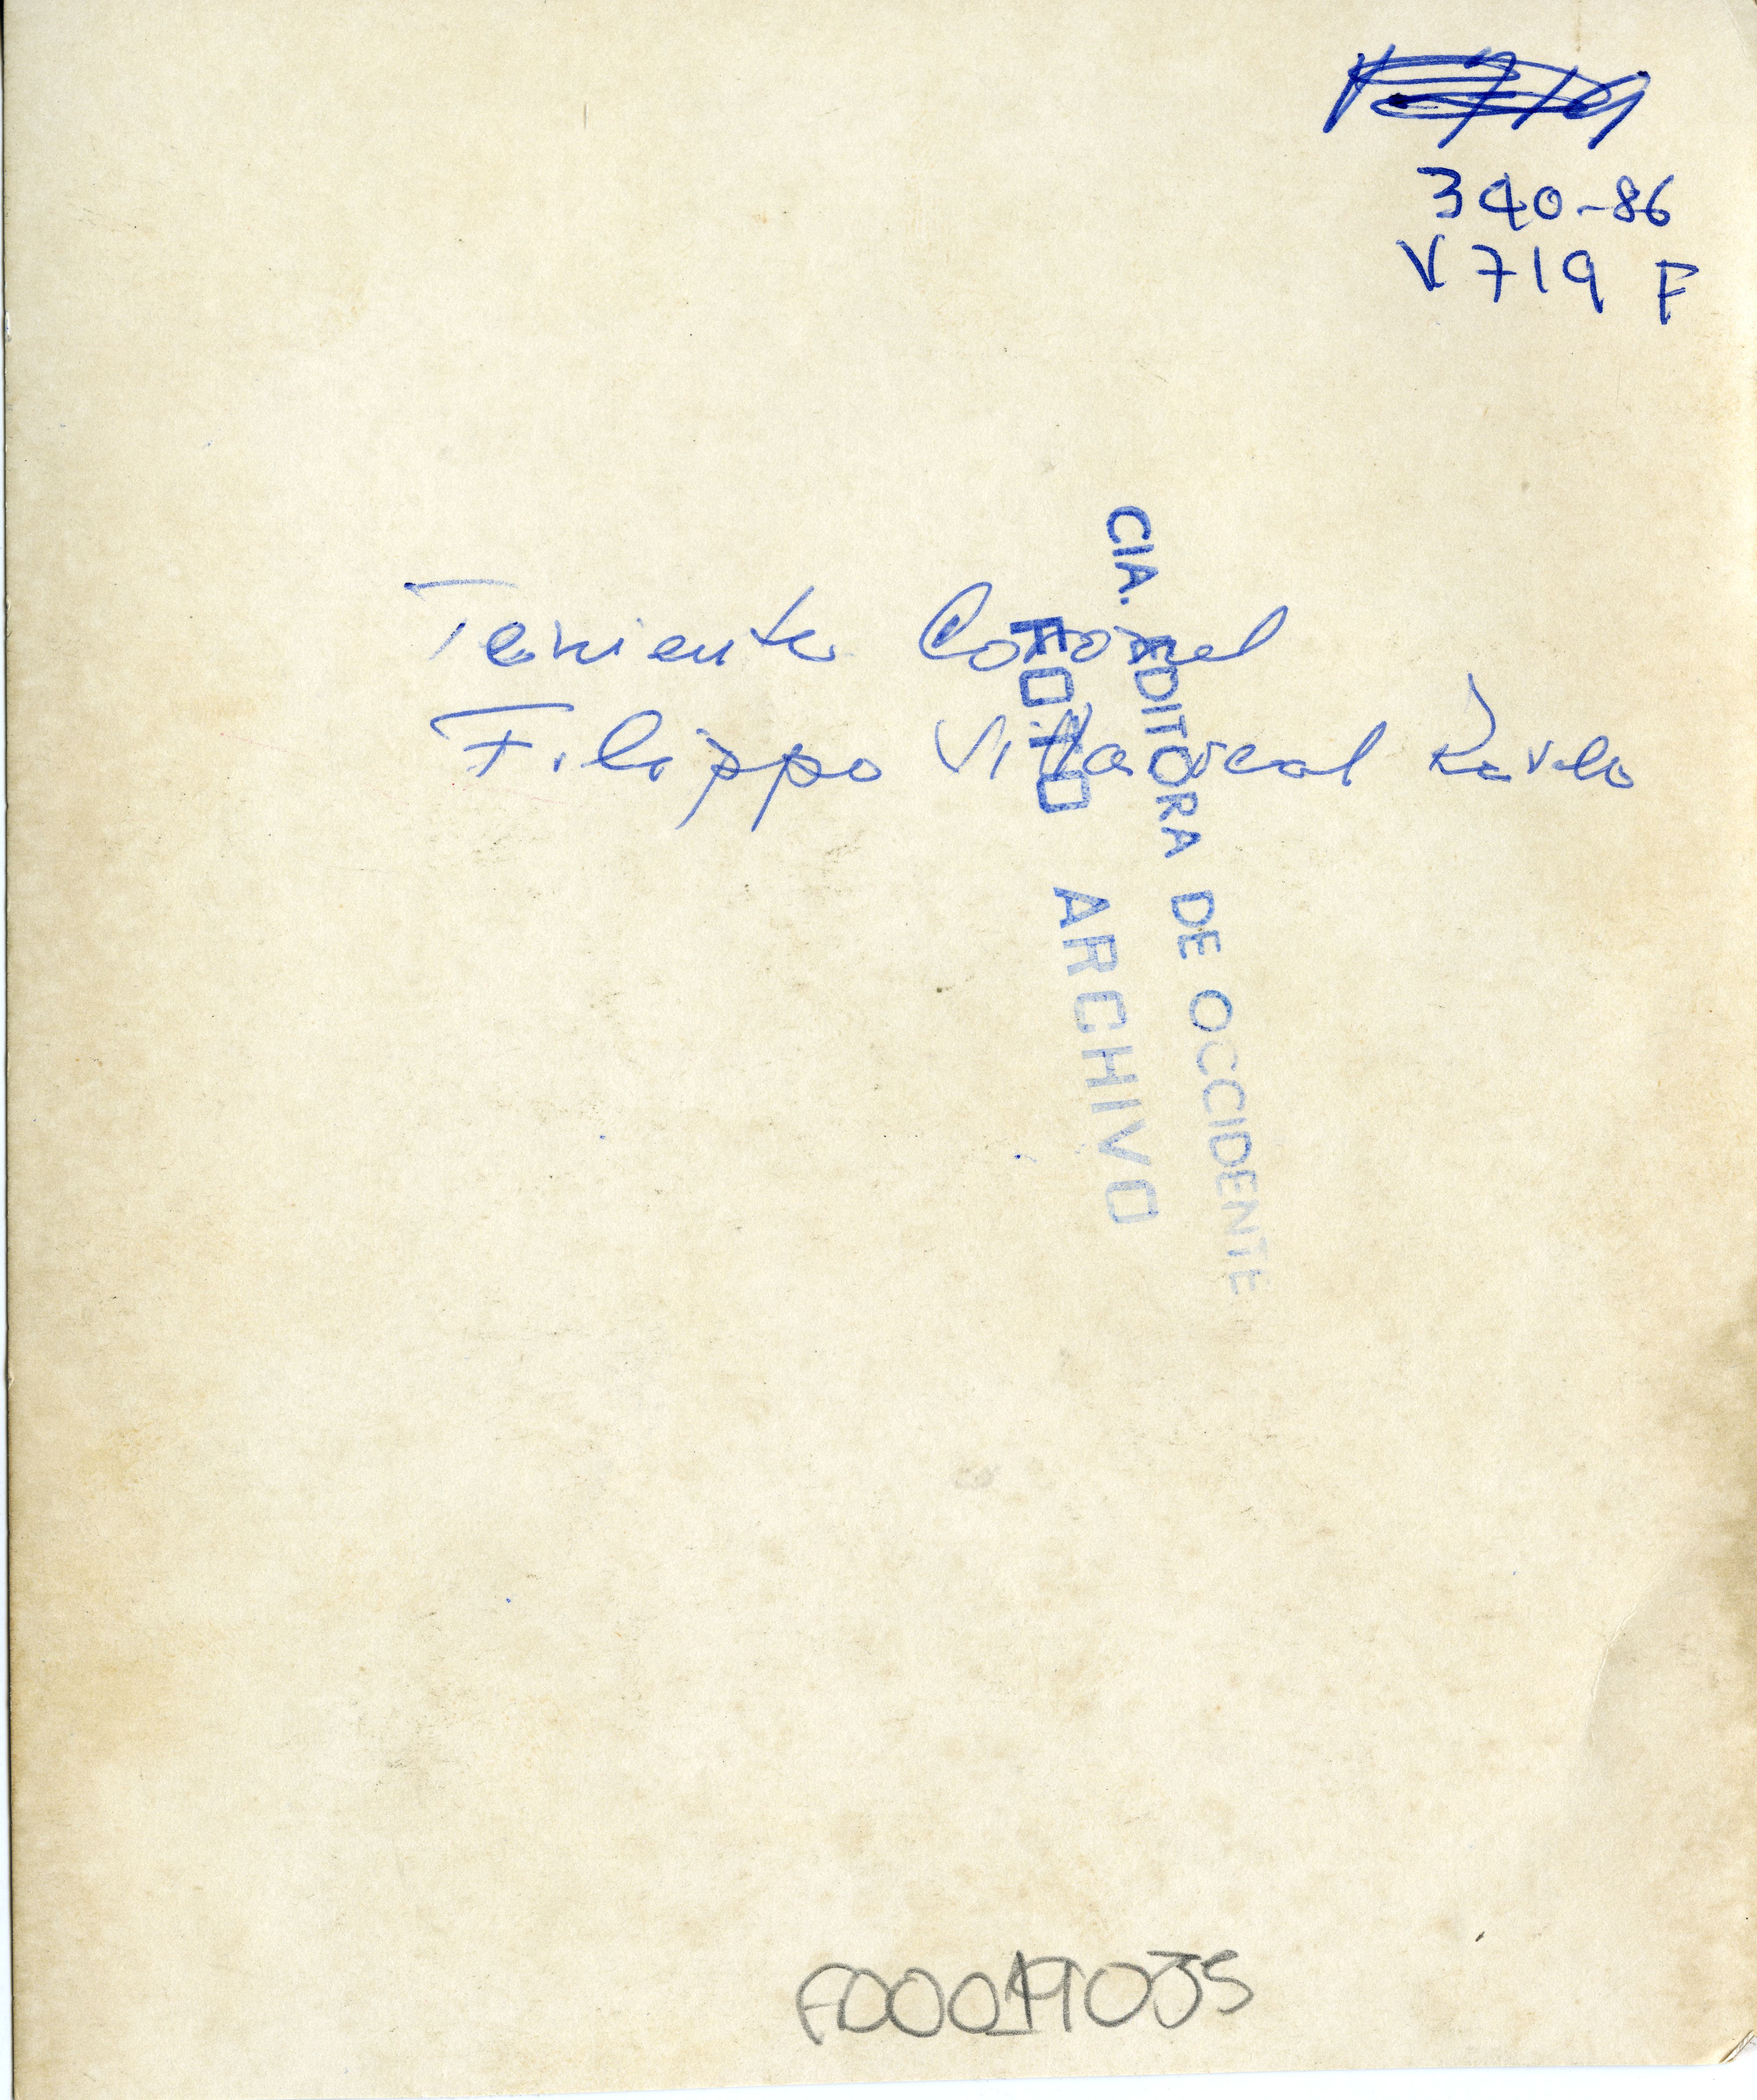 340-86
V719 F
Teniente Coronel
Filippo Villareal Revelo
CIA. EDITORA DE OCCIDENTE
FOTO ARCHIVO
F00019035